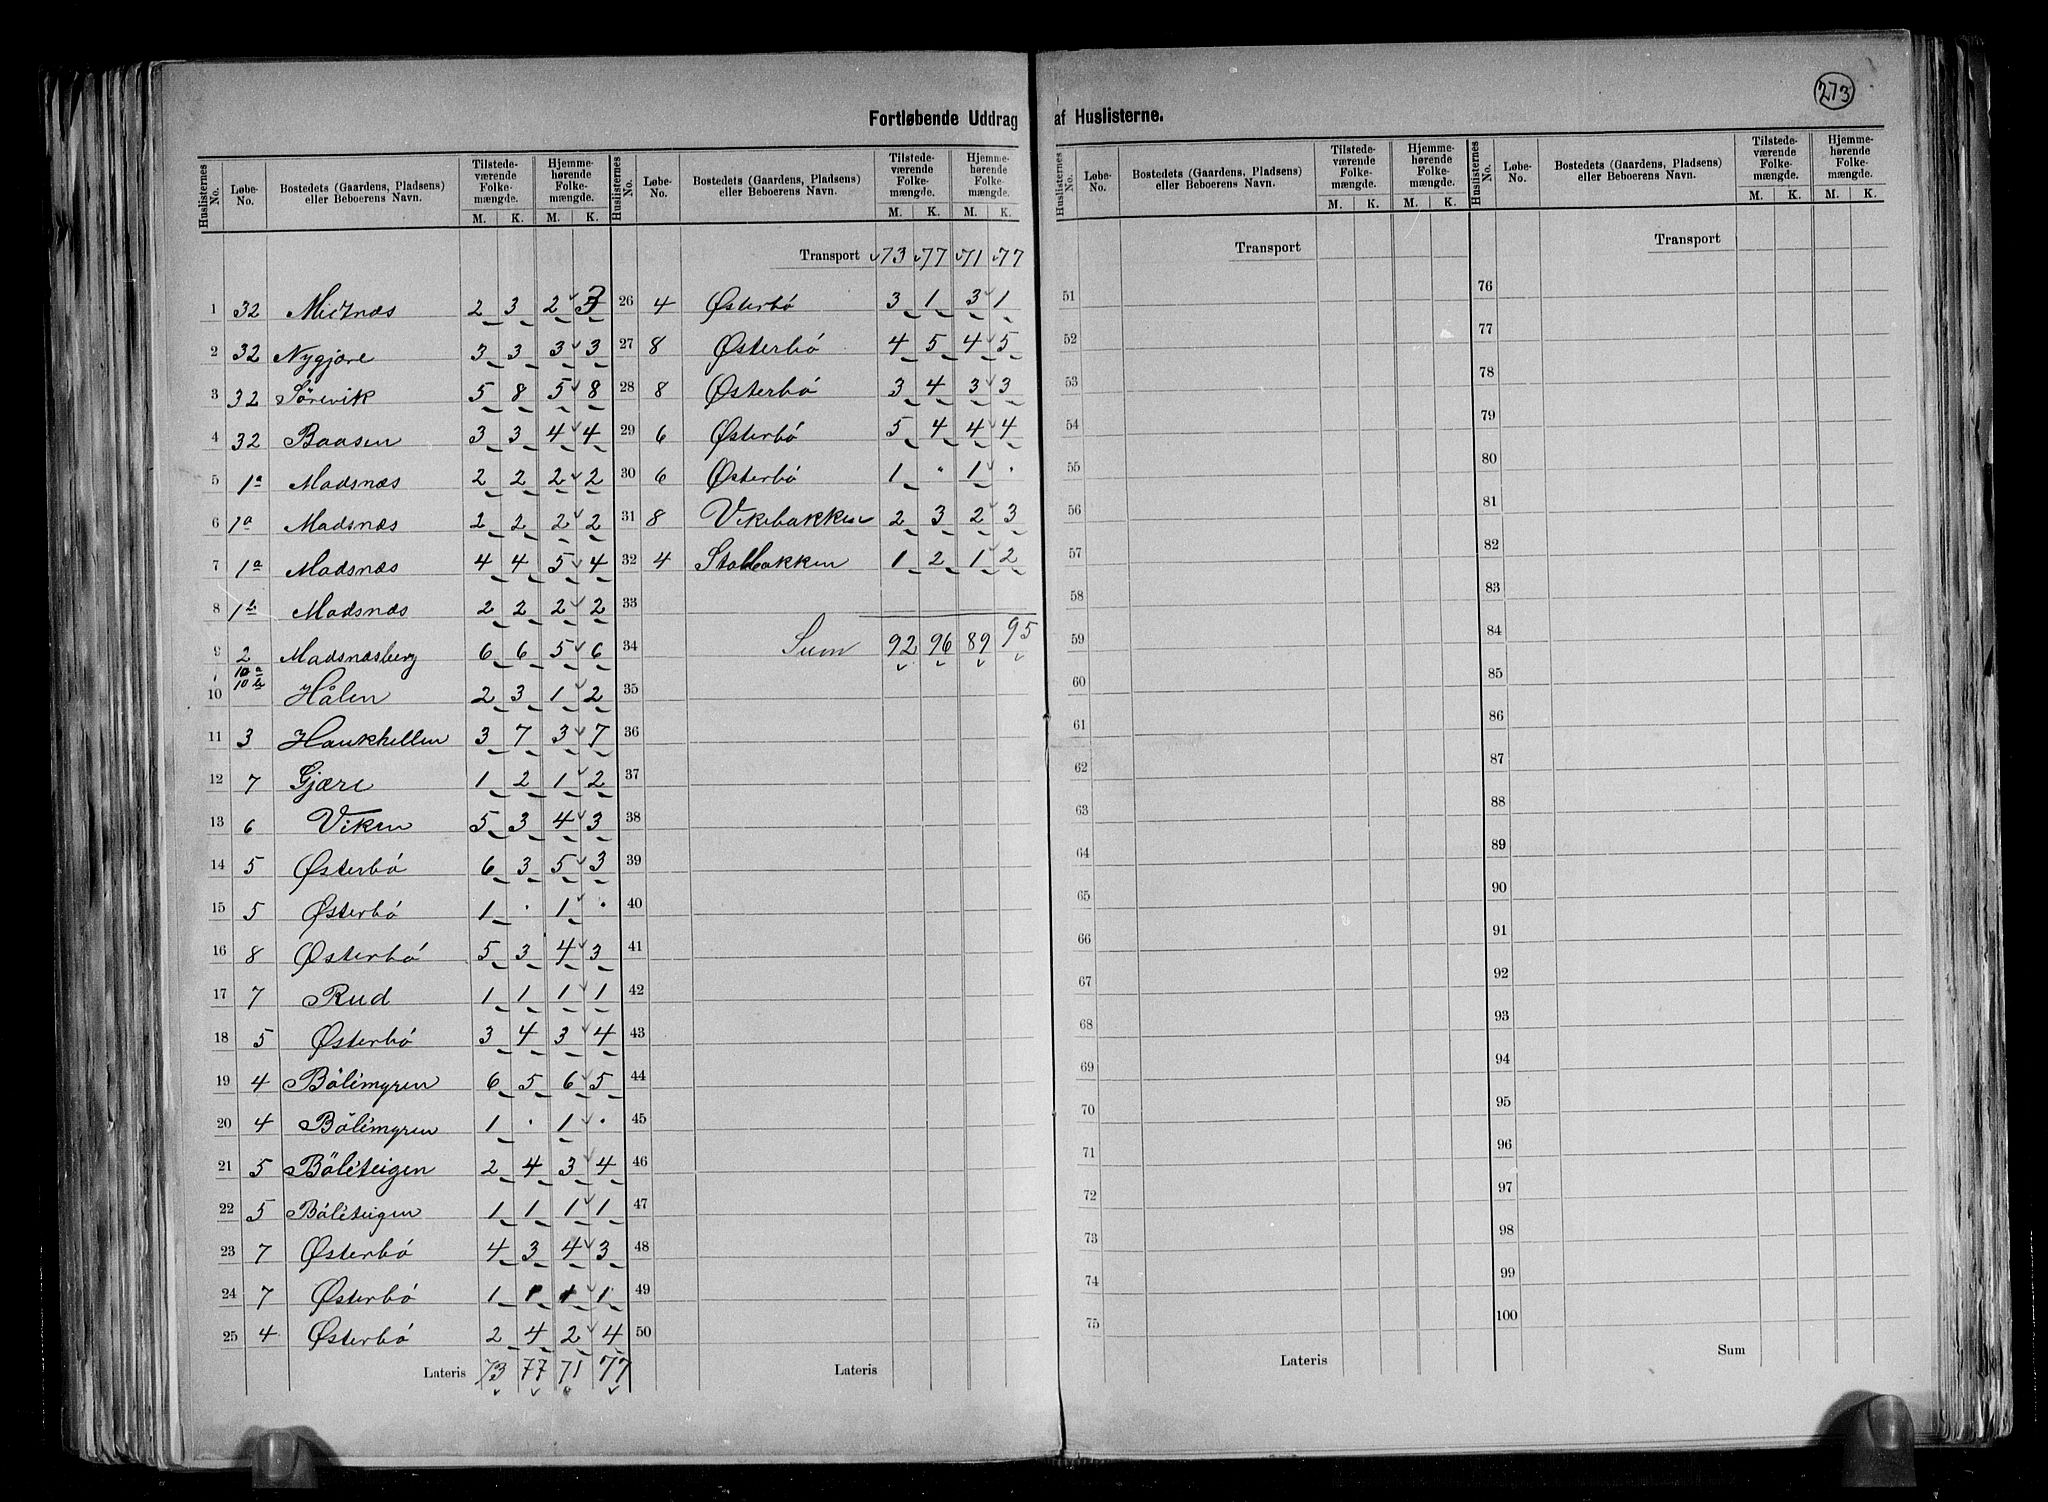 273
Fortløbende Uddrag af Huslisterne.
Huslisternes No. Løbe-No. Bostedets (Gaardens, Pladsens) eller Beboerens Navn. Tilstedeværende Folkemængde. M. K. Hjemmehørende Folkemængde. M. K.
1 32 Midtnæs 2 3 2 3
2 32 Nygjære 3 3 3 3
3 32 Sörevik 5 8 5 8
4 32 Baasen 3 3 4 4
5 1a Madsnæs 2 2 2 2
6 1a Madsnæs 2 2 2 2
7 1a Madsnæs 4 4 5 4
8 1b Madsnæs 2 2 2 2
9 2 Madsnæsberg 6 6 5 6
10 10a 10b Hålen 2 3 1 2
11 3 Haukhellen 3 7 3 7
12 7 Gjære 1 2 1 2
13 6 Viken 5 3 4 3
14 5 Østerbó 6 3 5 3
15 5 Østerbó 1 · 1 ·
16 8 Østerbó 5 3 4 3
17 7 Rud 1 1 1 1
18 5 Østerbó 3 4 3 4
19 4 Bölimyren 6 5 6 5
20 4 Bölimyren 1 · 1 ·
21 5 Böliteigen 2 4 3 4
22 5 Bóliteigen 1 1 1 1
23 7 Østerbó 4 3 4 3
24 7 Østerbó 1 1 1 1
25 4 Østerbó 2 4 2 4
Lateris 73 77 71 77
Huslisternes No. Løbe-No. Bostedets (Gaardens, Pladsens) eller Beboerens Navn. Tilstedeværende Folkemængde. M. K. Hjemmehørende Folkemængde. M. K.
Transport 73 77 71 77
26 4 Østerbó 3 1 3 1
27 8 Østerbó 4 5 4 5
28 8 Østerbó 3 4 3 3
29 6 Østerbó 5 4 4 4
30 6 Østerbó 1 " 1 ·
31 8 Vikebakken 2 3 2 3
32 4 Stolbakken 1 2 1 2
33
34 Sum 92 96 89 95
35
36
37
38
39
40
41
42
43
44
45
46
47
48
49
50
Lateris
Huslisternes No. Løbe-No. Bostedets (Gaardens, Pladsens) eller Beboerens Navn. Tilstedeværende Folkemængde. M. K. Hjemmehørende Folkemængde. M. K.
Transport
51
52
53
54
55
56
57
58
59
60
61
62
63
64
65
66
67
68
69
70
71
72
73
74
75
Lateris
Huslisternes No. Løbe-No. Bostedets (Gaardens, Pladsens) eller Beboerens Navn. Tilstedeværende Folkemængde. M. K. Hjemmehørende Folkemængde. M. K.
Transport
76
77
78
79
80
81
82
83
84
85
86
87
88
89
90
91
92
93
94
95
96
97
98
99
100
Sum